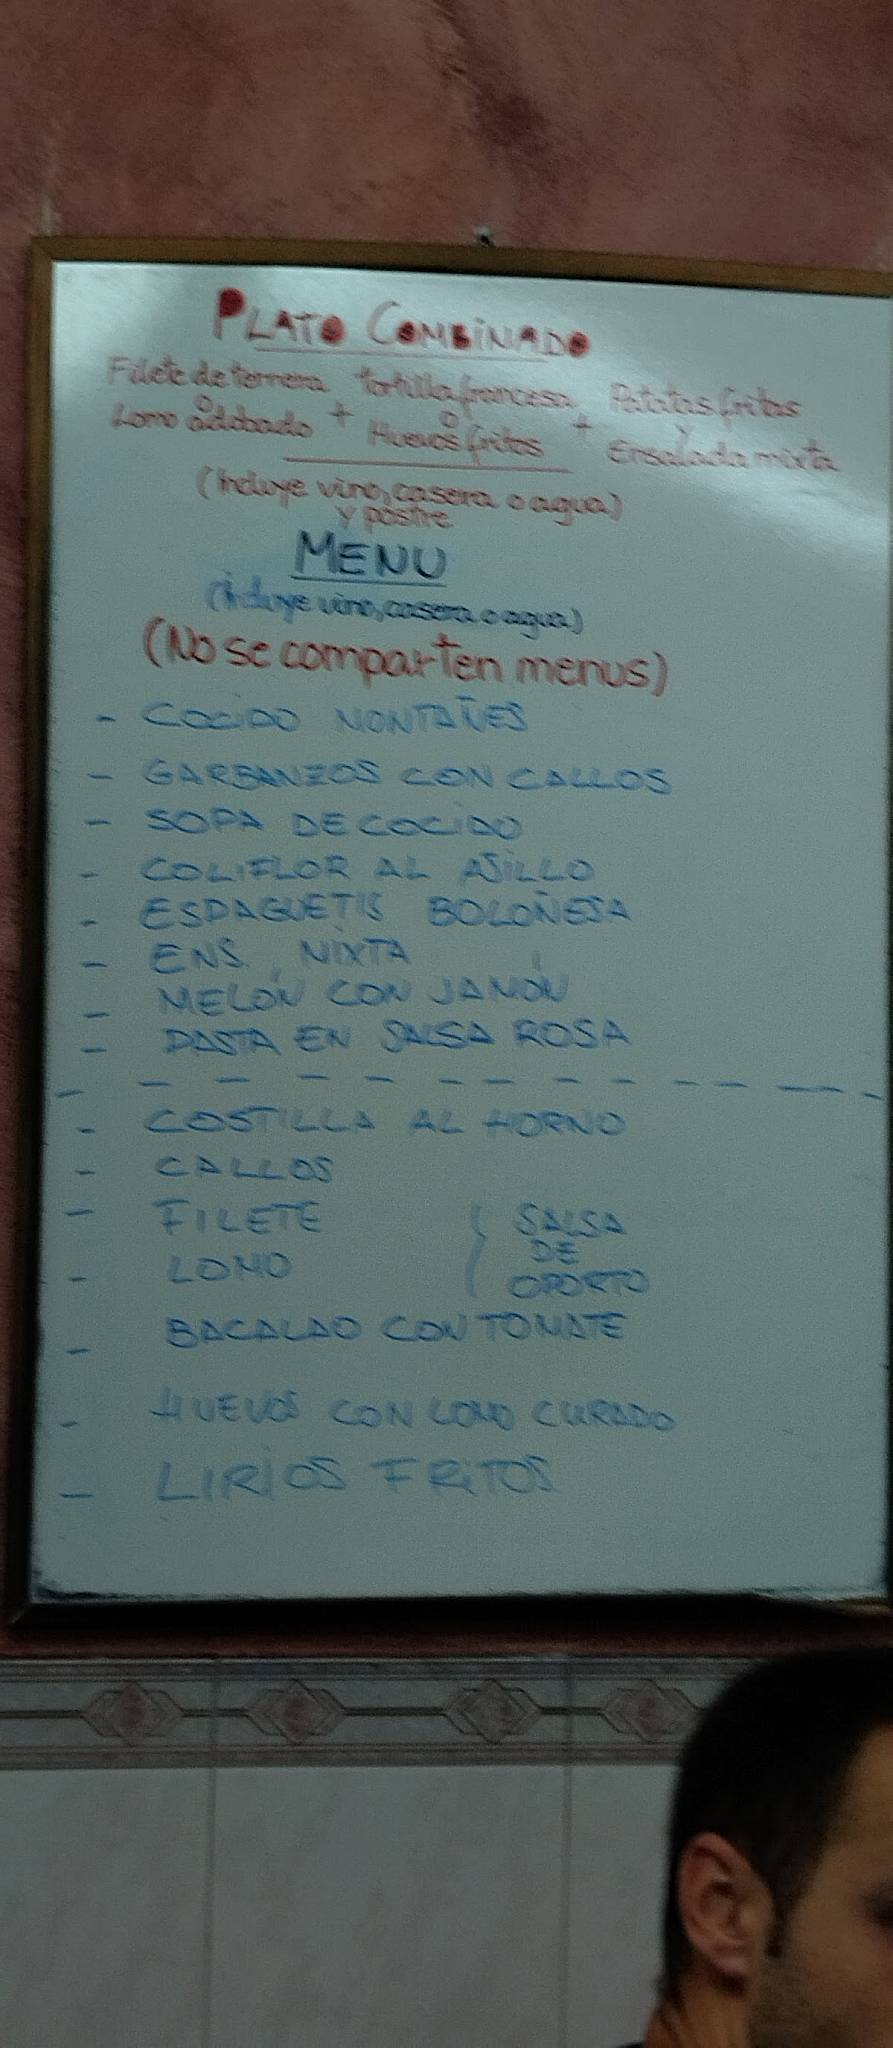 PLATO COMBINADO
Filete de ternera tortilla francesa Patatas fritas
o + o + y
Lomo adobado Huevos fritos Ensalada mixta
(Incluye vino, casera o agua)
y postre
MENU
(incluye vino, casera o agua)
(No se comparten menus)
- COCIDO MONTAÑES
- GARBANZOS CON CALLOS
- SOPA DE COCIDO
- COLIFLOR AL AJILLO
- ESPAGUETIS BOLOÑESA
- ENS. MIXTA
- MELÓN CON JAMÓN
- PASTA EN SALSA ROSA
- COSTILLA AL HORNO
- CALLOS
- FILETE { SALSA
DE
- LOMO OPORTO
- BACALAO CON TOMATE
- HUEVOS CON LOMO CURADO
- LIRIOS FRITOS